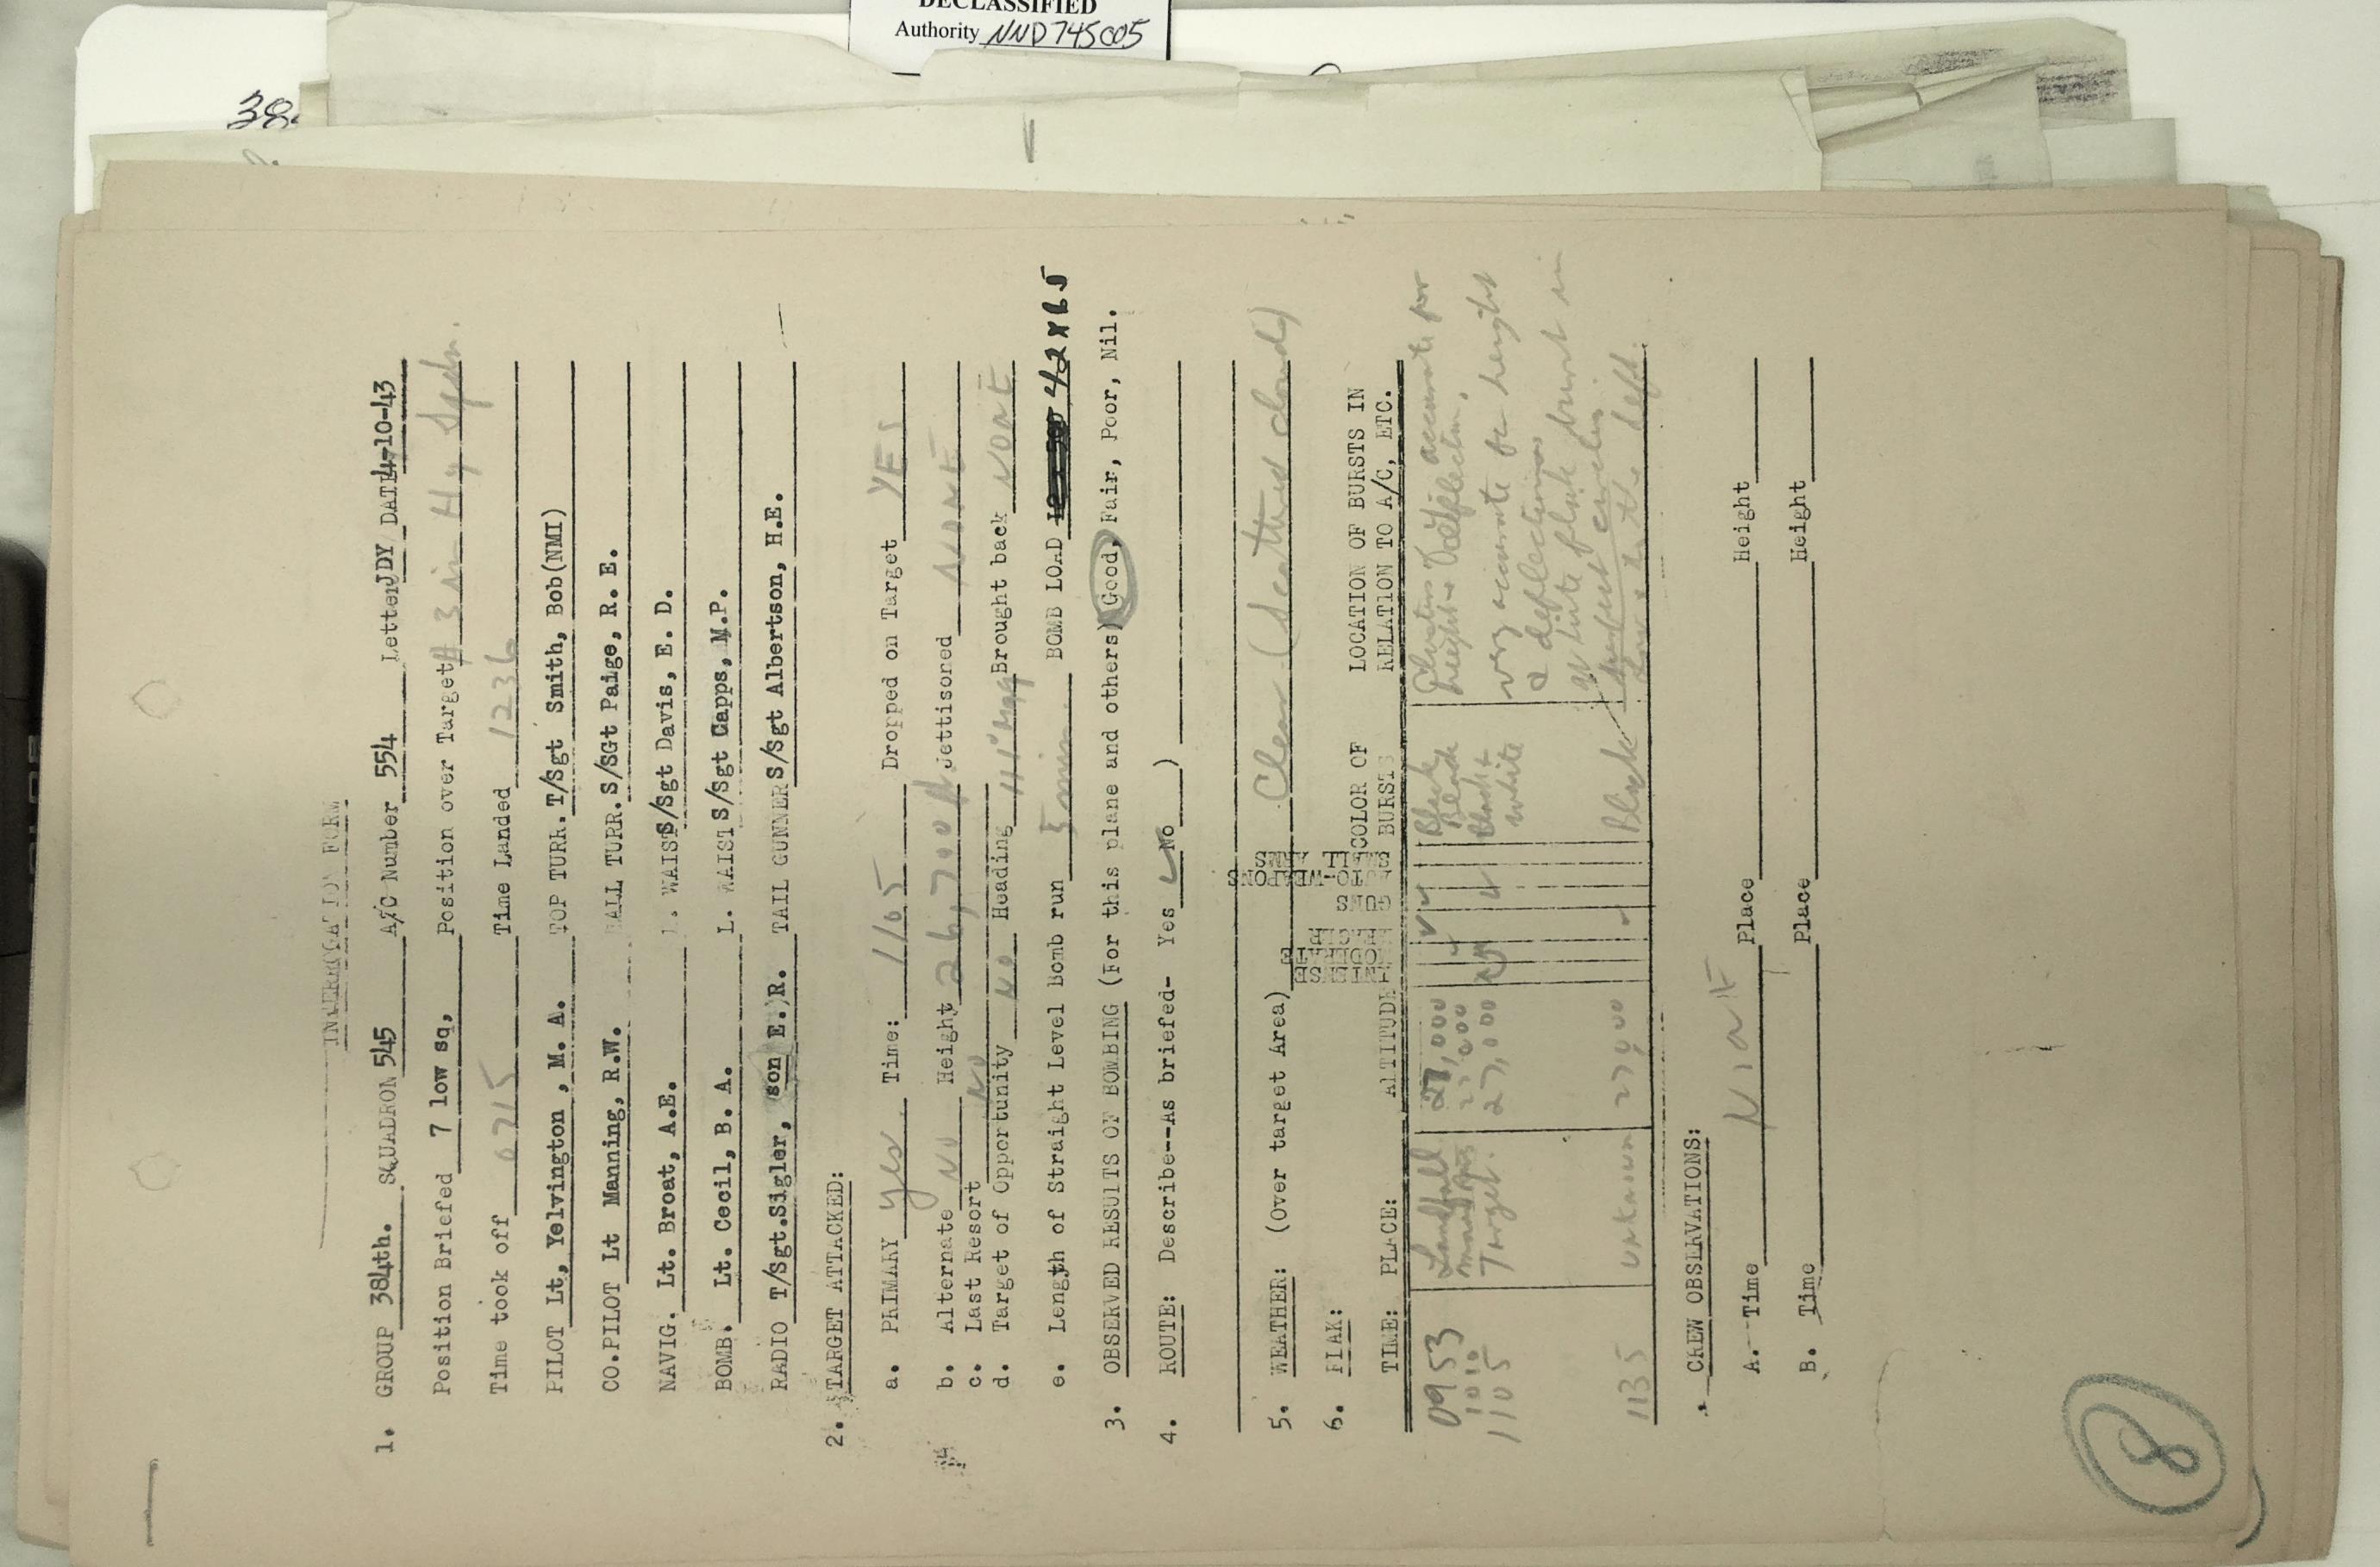 DECLASSIFIED
Authority NND 745005
38
INTERROGATION FORM
1. GROUP 384th. SQUADRON 545 A/C Number 554 Letter JDY DATE 4-10-43
Position Briefed 7 low sq, Position over Target # 3 in Hy Sqdn.
Time took off 0715 Time Landed 1236
PILOT Lt, Yelvington, M. A. TOP TURR. T/Sgt Smith, Bob(NMI)
CO.PILOT Lt Manning, R.W. BALL TURR. S/SGt Paige, R. E.
NAVIG. Lt. Broat, A.E. R. WAIST S/Sgt Davis, E. D.
BOMB. Lt. Cecil, B. A. L. WAIST S/Sgt Capps, M.P.
RADIO T/Sgt.Sigler, son E.)R. TAIL GUNNER S/Sgt Albertson, H.E.
2. TARGET ATTACKED:
a. PRIMARY yes Time: 1105 Dropped on Target YES
b. Alternate NO Height 26,700 ft. Jettisoned NONE
c. Last Resort NO
d. Target of Opportunity NO Heading 11° Mag Brought back NONE
e. Length of Straight Level Bomb run 5 min. BOMB LOAD 42 x 65
3. OBSERVED RESULTS OF BOMBING (For this plane and others) Good, Fair, Poor, Nil.
4. ROUTE: Describe--As briefed- Yes No )
5. WEATHER: (Over target Area) Clear (scattered clouds)
6. FLAK:
TIME: PLACE: ALTITUDE INTENSE MODERATE GUNS AUTO-WEAPONS SMALL ARMS COLOR OF BURSTS LOCATION OF BURSTS IN RELATION TO A/C, ETC.
0953 Landfall 27,000 Black accurate for height & deflection,
1010 27,000 Black
1105 Target. 27,000 Black & white very accurate for height & deflection
white flak burst in perfect circles
1135 unknown 27,000 Black low & to the left.
CREW OBSERVATIONS:
A. Time NONE Place Height
B. Time Place Height
8